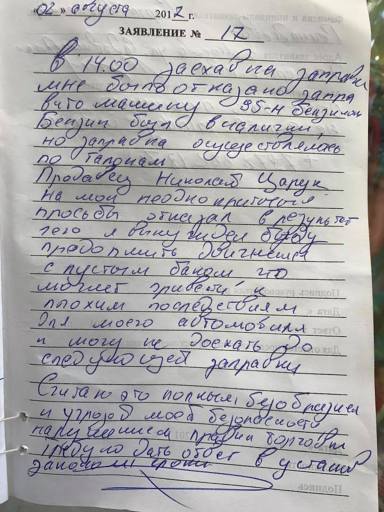 « 02 » августа 2017 г.
ЗАЯВЛЕНИЕ № 17
В 14.00 заехав на заправку
мне было отказано запра
вить машину 95-н бензином
Бензин был в наличии,
но заправка осуществлялась
по талонам
Продавец Николай Царук
на мои неоднократные
просьбы отказал в результат
чего я вынужден буду
продолжить движение
с пустым баком что
может привести к
плохим последствиям
для моего автомобиля
и могу не доехать до
следующей заправки
Считаю это полным безобразием
и угрозой моей безопасности
нарушением правил торговли
Требую дать ответ в установ
законом сроки